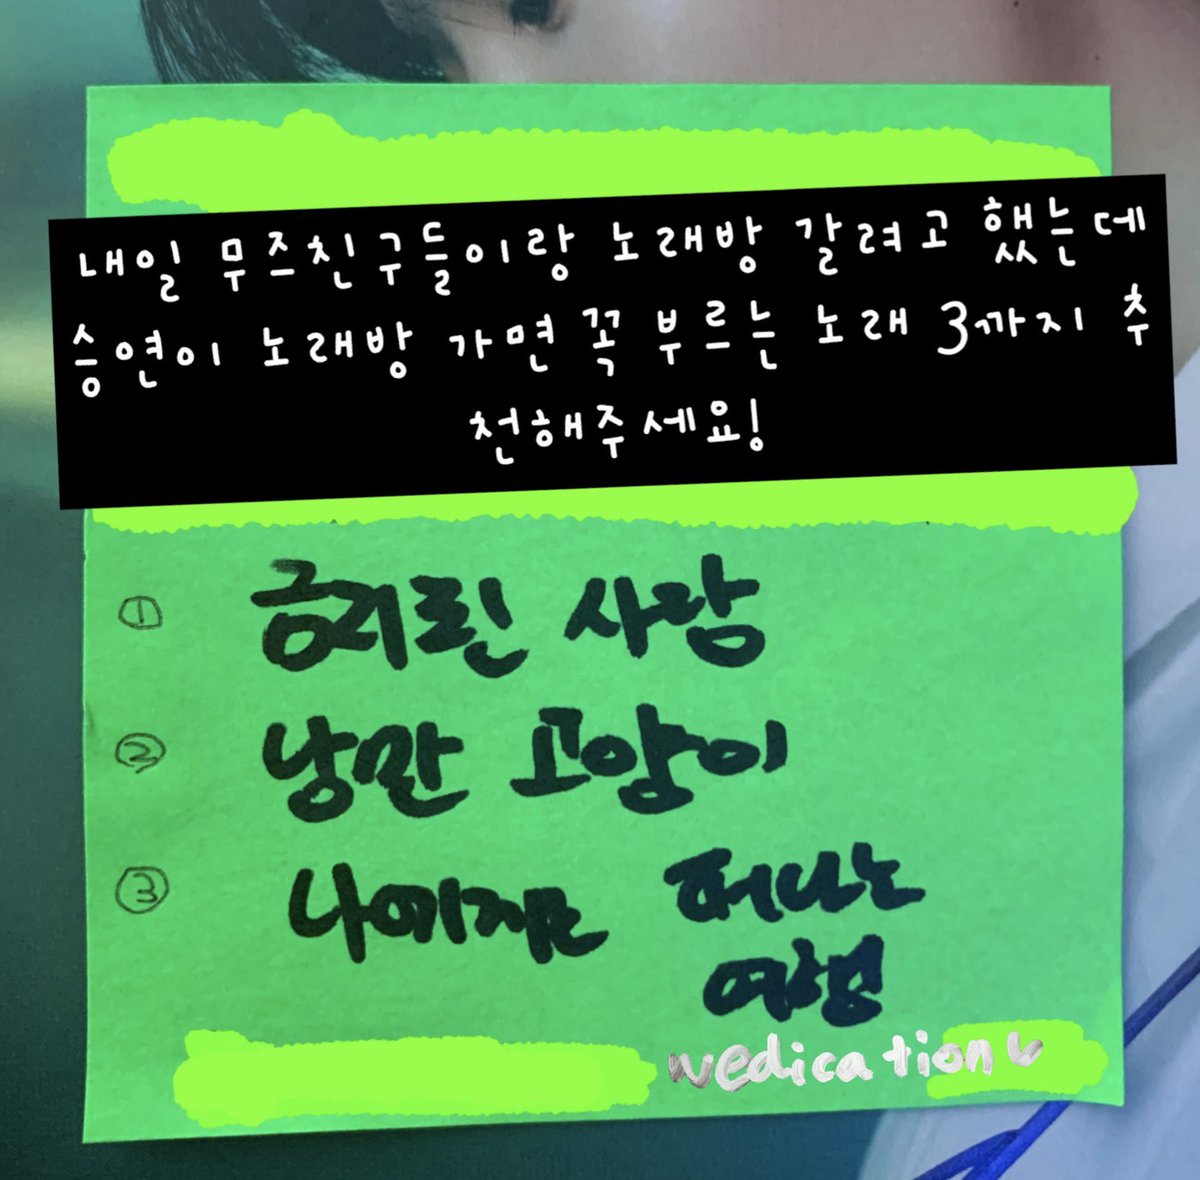 내일 무즈친구들이랑 노래방 갈려고 했는데
승연이 노래방 가면 꼭 부르는 노래 3까지 추
천해주세요!
① 흐린 사랑
② 낭만 고양이
③ 나에게로 떠나는
여행
wedication